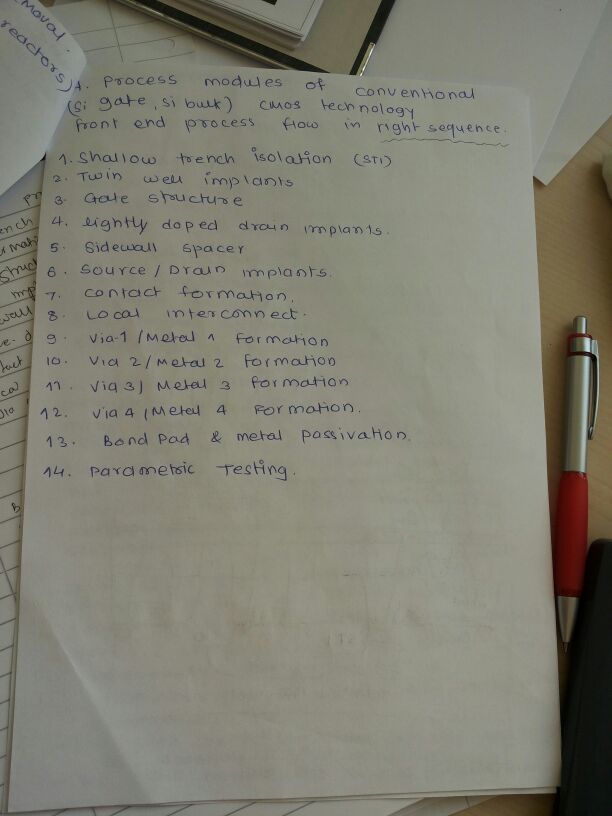 moval.
reactors)
4. Process modules of conventional
(Si gate, Si bulk) CMOS technology
front end process flow in right sequence.
1. Shallow trench isolation (STI)
2. Twin well implants
3. Gate structure
4. lightly doped drain implants.
5. Sidewall spacer
6. Source / Drain implants.
7. Contact formation.
8. Local interconnect.
9. Via-1 / Metal 1 formation
10. Via 2 / Metal 2 formation
11. Via 3 / Metal 3 formation
12. Via 4 / Metal 4 Formation.
13. Bond Pad & metal passivation.
14. Parametric Testing.